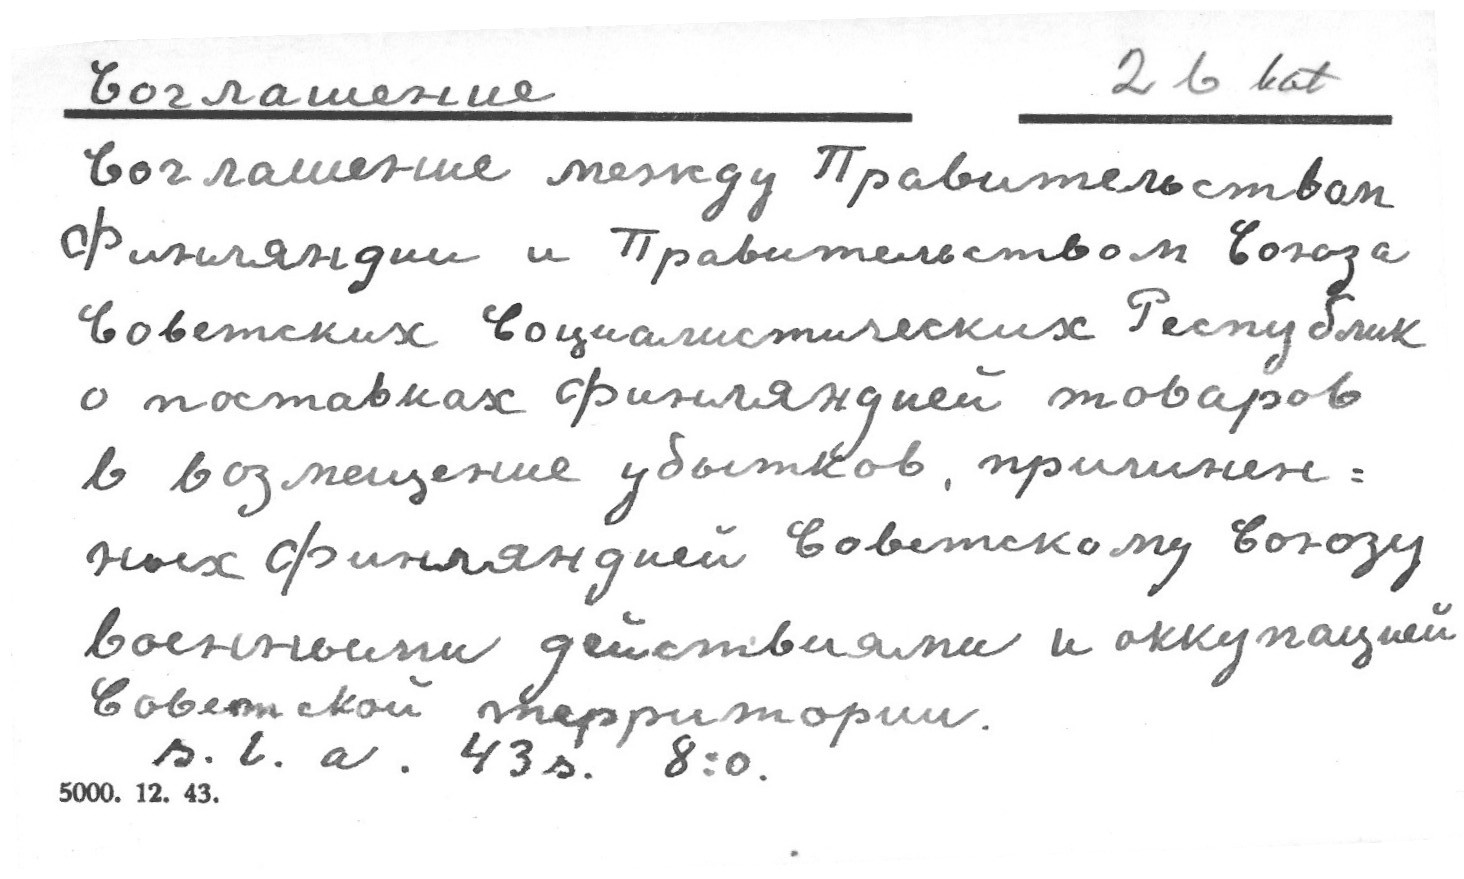 Соглашение 2 b kat
Соглашение между Правительством
Финляндии и Правительством Союза
Советских Социалистических Республик
о поставках Финляндией товаров
в возмещение убытков, причинен=
ных Финляндией Советскому Союзу
военными действиями и оккупацией
Советской территории.
s. l. a. 43 s. 8:o.
5000. 12. 43.